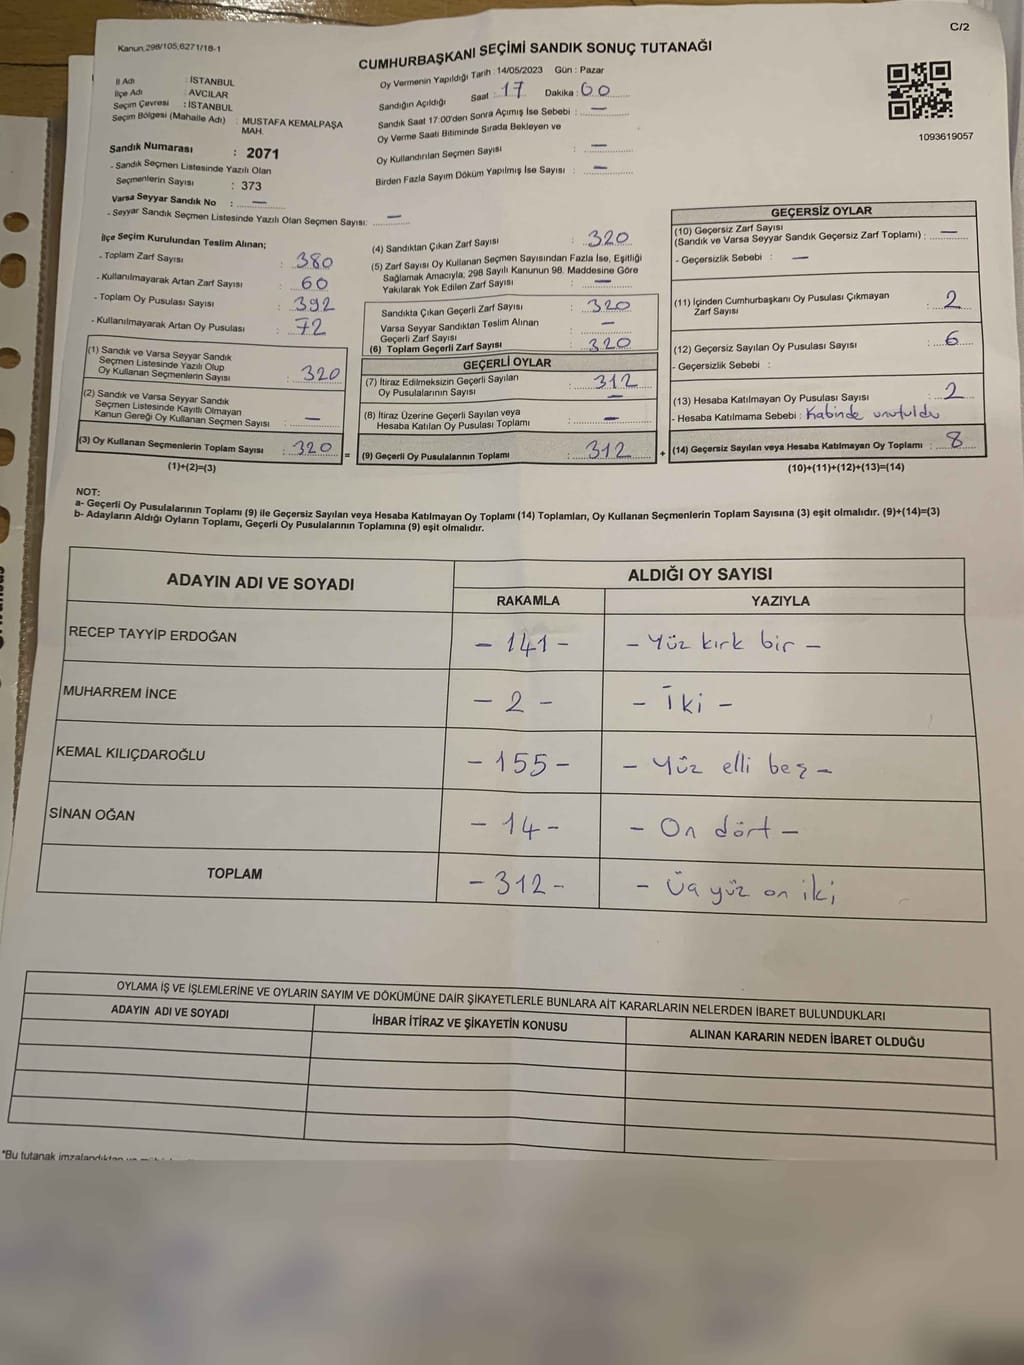 C/2
Kanun 298/105,6271/18-1
CUMHURBAŞKANI SEÇİMİ SANDIK SONUÇ TUTANAĞI
İl Adı : İSTANBUL
İlçe Adı : AVCILAR
Seçim Çevresi : İSTANBUL
Seçim Bölgesi (Mahalle Adı) : MUSTAFA KEMALPAŞA
MAH.
Sandık Numarası : 2071
- Sandık Seçmen Listesinde Yazılı Olan
Seçmenlerin Sayısı : 373
Varsa Seyyar Sandık No : —
- Seyyar Sandık Seçmen Listesinde Yazılı Olan Seçmen Sayısı: —
Oy Vermenin Yapıldığı Tarih : 14/05/2023 Gün : Pazar
Sandığın Açıldığı Saat : 17 Dakika : 00
Sandık Saat 17:00'den Sonra Açımış İse Sebebi : —
Oy Verme Saati Bitiminde Sırada Bekleyen ve
Oy Kullandırılan Seçmen Sayısı : —
Birden Fazla Sayım Döküm Yapılmış İse Sayısı : —
1093619057
İlçe Seçim Kurulundan Teslim Alınan;
- Toplam Zarf Sayısı : 380
- Kullanılmayarak Artan Zarf Sayısı : 60
- Toplam Oy Pusulası Sayısı : 392
- Kullanılmayarak Artan Oy Pusulası : 72
(1) Sandık ve Varsa Seyyar Sandık
Seçmen Listesinde Yazılı Olup
Oy Kullanan Seçmenlerin Sayısı : 320
(2) Sandık ve Varsa Seyyar Sandık
Seçmen Listesinde Kayıtlı Olmayan
Kanun Gereği Oy Kullanan Seçmen Sayısı : —
(3) Oy Kullanan Seçmenlerin Toplam Sayısı : 320
(1)+(2)=(3)
(4) Sandıktan Çıkan Zarf Sayısı : 320
(5) Zarf Sayısı Oy Kullanan Seçmen Sayısından Fazla İse, Eşitliği
Sağlamak Amacıyla, 298 Sayılı Kanunun 98. Maddesine Göre
Yakılarak Yok Edilen Zarf Sayısı : —
Sandıkta Çıkan Geçerli Zarf Sayısı : 320
Varsa Seyyar Sandıktan Teslim Alınan
Geçerli Zarf Sayısı : —
(6) Toplam Geçerli Zarf Sayısı : 320
GEÇERLİ OYLAR
(7) İtiraz Edilmeksizin Geçerli Sayılan
Oy Pusulalarının Sayısı : 312
(8) İtiraz Üzerine Geçerli Sayılan veya
Hesaba Katılan Oy Pusulası Toplamı : —
= (9) Geçerli Oy Pusulalarının Toplamı : 312
GEÇERSİZ OYLAR
(10) Geçersiz Zarf Sayısı
(Sandık ve Varsa Seyyar Sandık Geçersiz Zarf Toplamı) : —
- Geçersizlik Sebebi : —
(11) İçinden Cumhurbaşkanı Oy Pusulası Çıkmayan
Zarf Sayısı : 2
(12) Geçersiz Sayılan Oy Pusulası Sayısı : 6
- Geçersizlik Sebebi :
(13) Hesaba Katılmayan Oy Pusulası Sayısı : 2
- Hesaba Katılmama Sebebi : Kabinde unutuldu
+ (14) Geçersiz Sayılan veya Hesaba Katılmayan Oy Toplamı : 8
(10)+(11)+(12)+(13)=(14)
NOT:
a- Geçerli Oy Pusulalarının Toplamı (9) ile Geçersiz Sayılan veya Hesaba Katılmayan Oy Toplamı (14) Toplamları, Oy Kullanan Seçmenlerin Toplam Sayısına (3) eşit olmalıdır. (9)+(14)=(3)
b- Adayların Aldığı Oyların Toplamı, Geçerli Oy Pusulalarının Toplamına (9) eşit olmalıdır.
ADAYIN ADI VE SOYADI ALDIĞI OY SAYISI
RAKAMLA YAZIYLA
RECEP TAYYİP ERDOĞAN - 141 - - Yüz kırk bir -
MUHARREM İNCE - 2 - - İki -
KEMAL KILIÇDAROĞLU - 155 - - Yüz elli beş -
SİNAN OĞAN - 14 - - On dört -
TOPLAM - 312 - - Üç yüz on iki
OYLAMA İŞ VE İŞLEMLERİNE VE OYLARIN SAYIM VE DÖKÜMÜNE DAİR ŞİKAYETLERLE BUNLARA AİT KARARLARIN NELERDEN İBARET BULUNDUKLARI
ADAYIN ADI VE SOYADI İHBAR İTİRAZ VE ŞİKAYETİN KONUSU ALINAN KARARIN NEDEN İBARET OLDUĞU
*Bu tutanak imzalandıktan